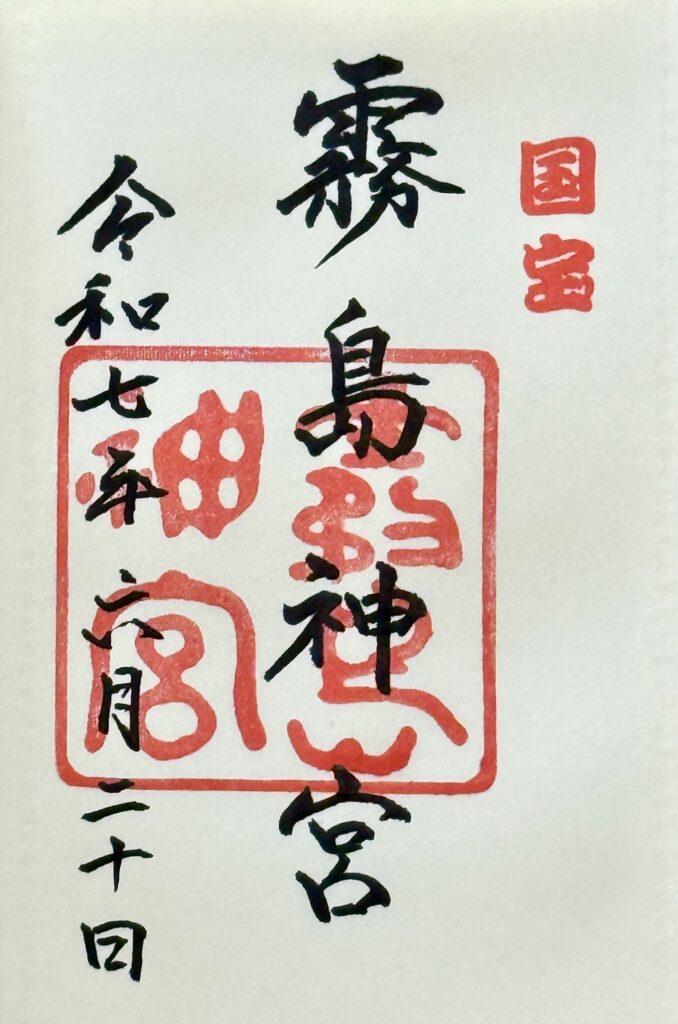 国宝
霧島神宮
霧島神宮
令和七年六月二十日